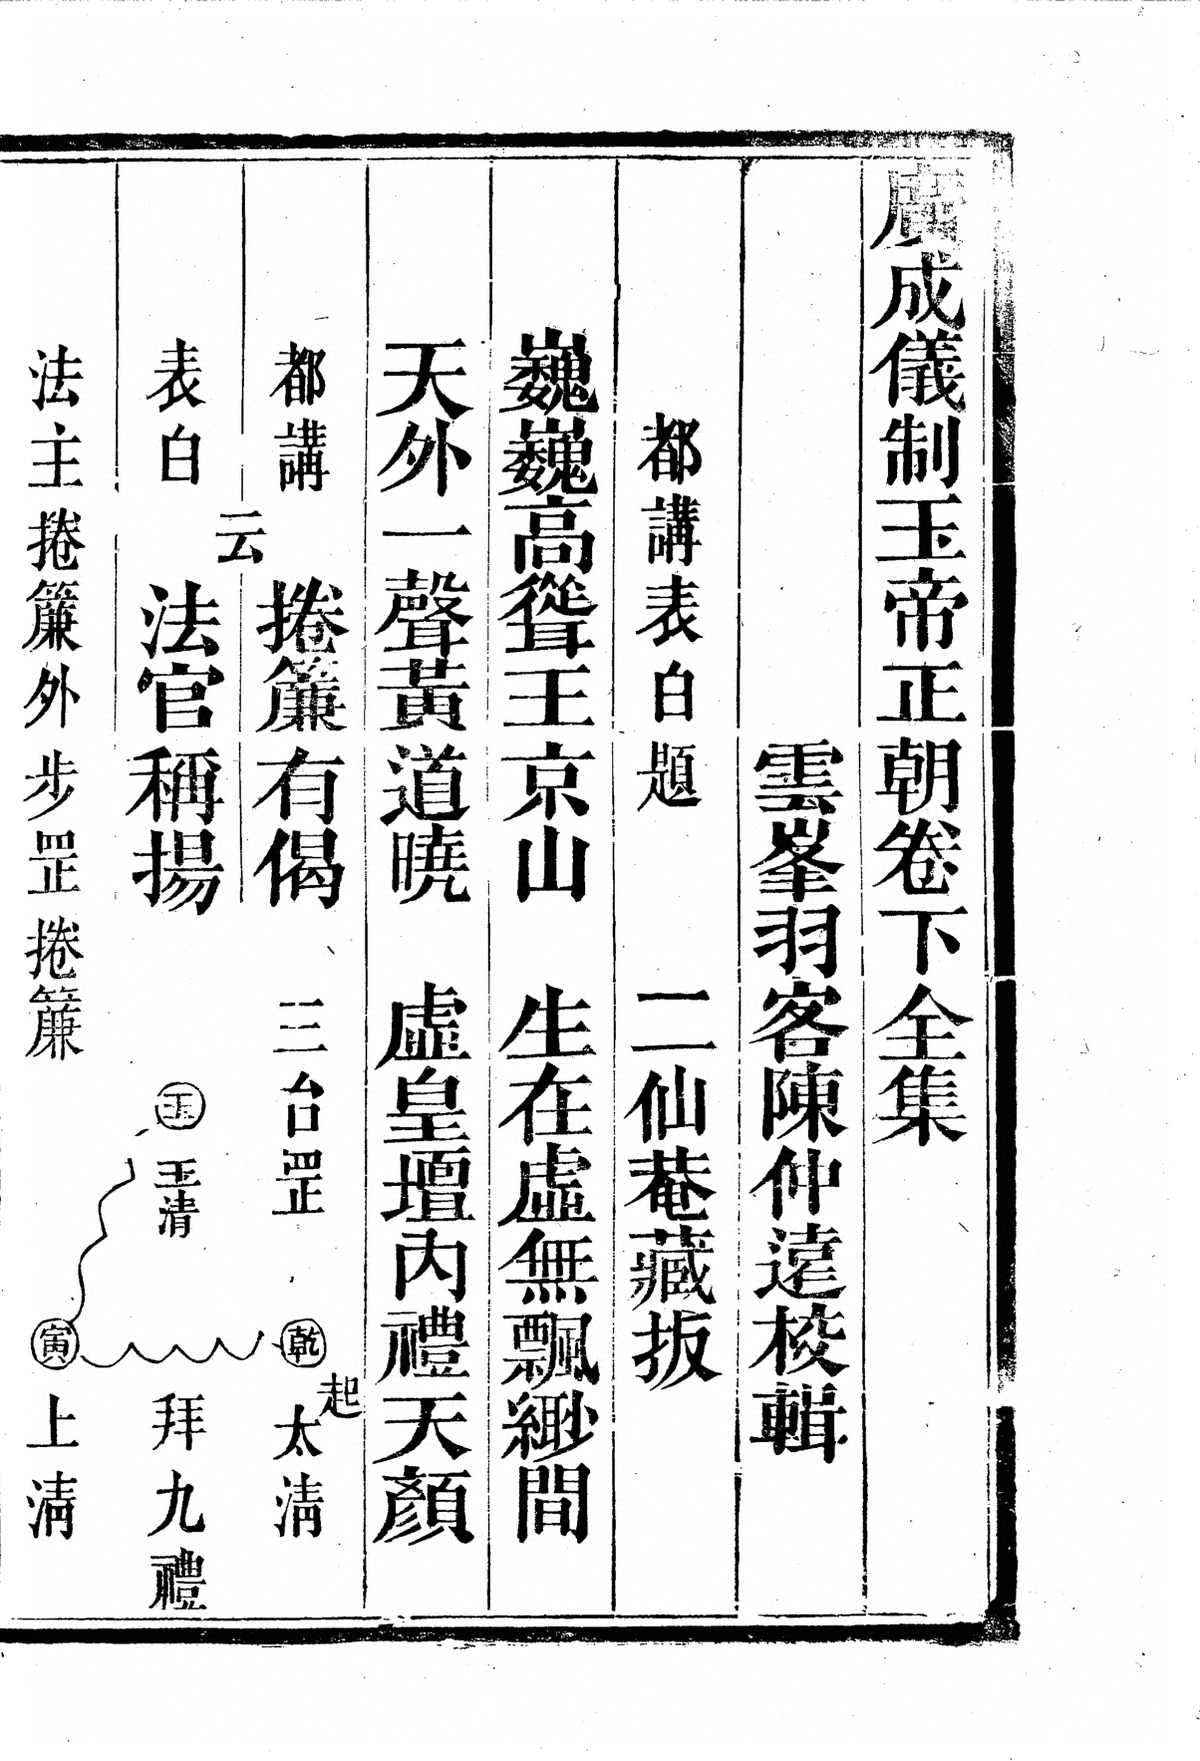 廣成儀制玉帝正朝卷下全集
雲峯羽客陳仲遠校輯
都講表白題　二仙菴藏板
巍巍高聳王京山　生在虛無飄緲間
天外一聲黃道曉　虛皇壇內禮天顏
都講　捲簾有偈　三台罡　乾　起　太清
云
表白　法官稱揚　玉　玉清　拜九禮
法主捲簾外步罡捲簾　寅　上清